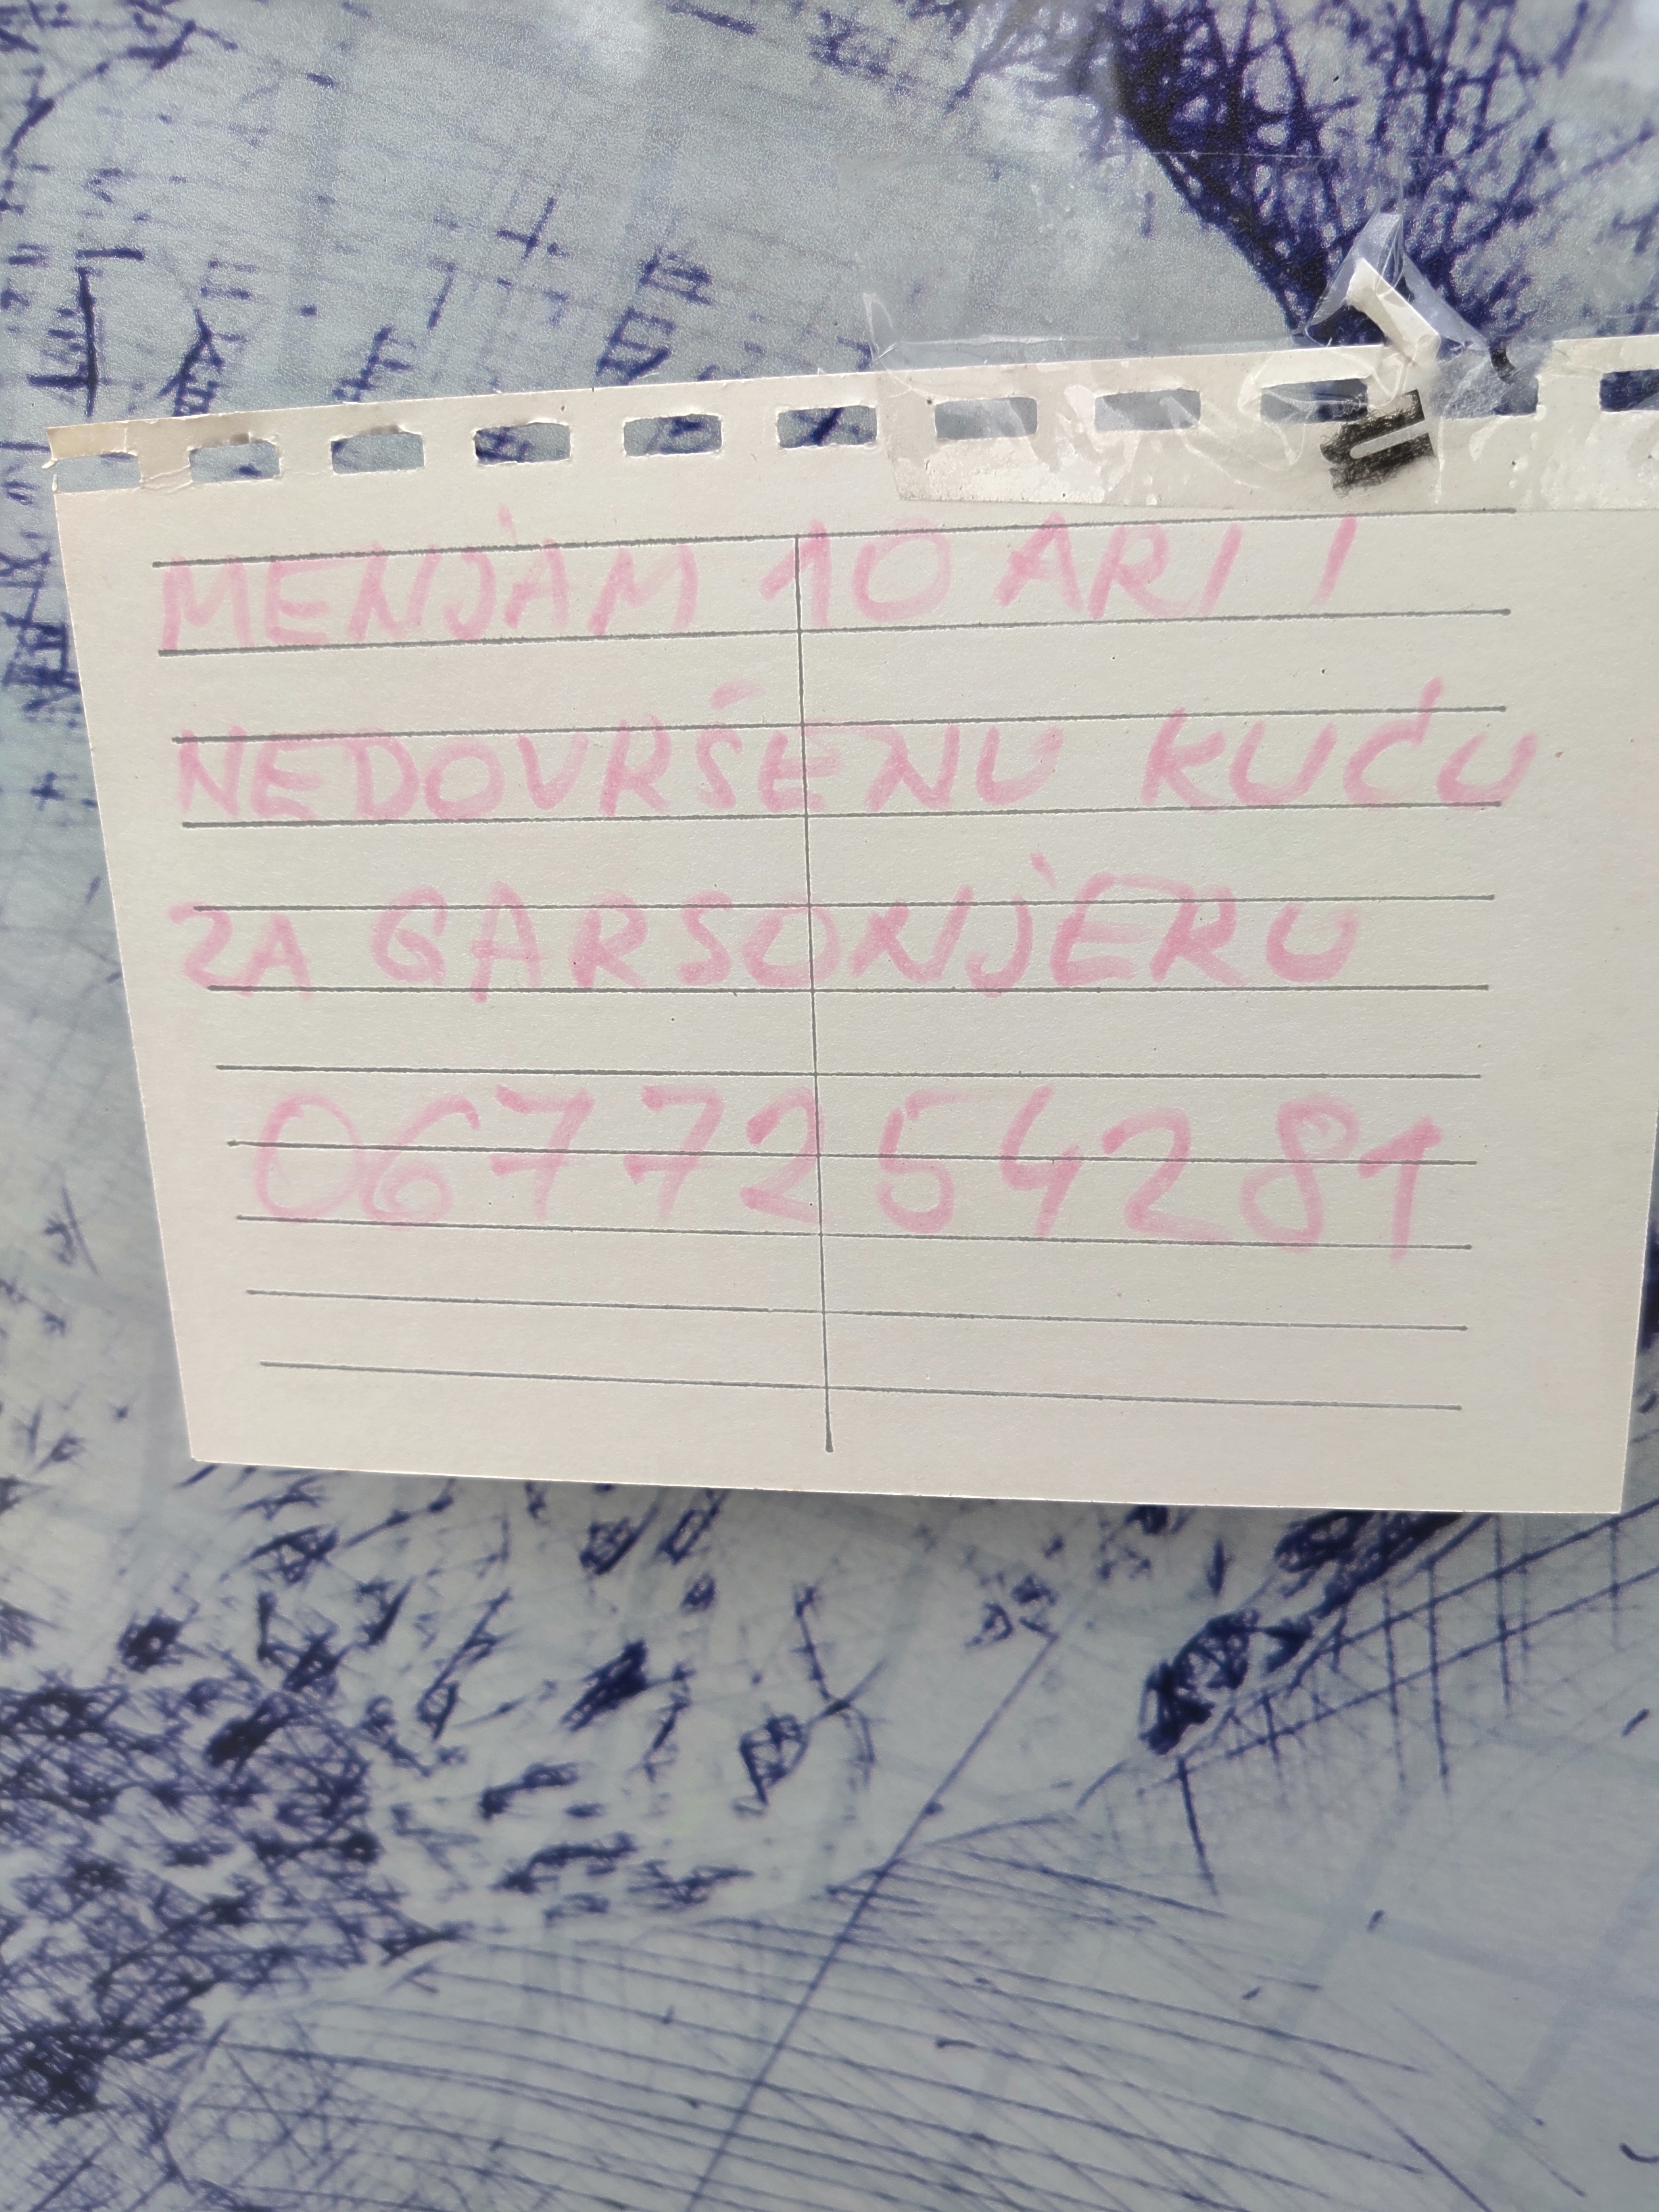 MENJAM 10 ARI I
NEDOVRŠENU KUĆU
ZA GARSONJERU
0677254281